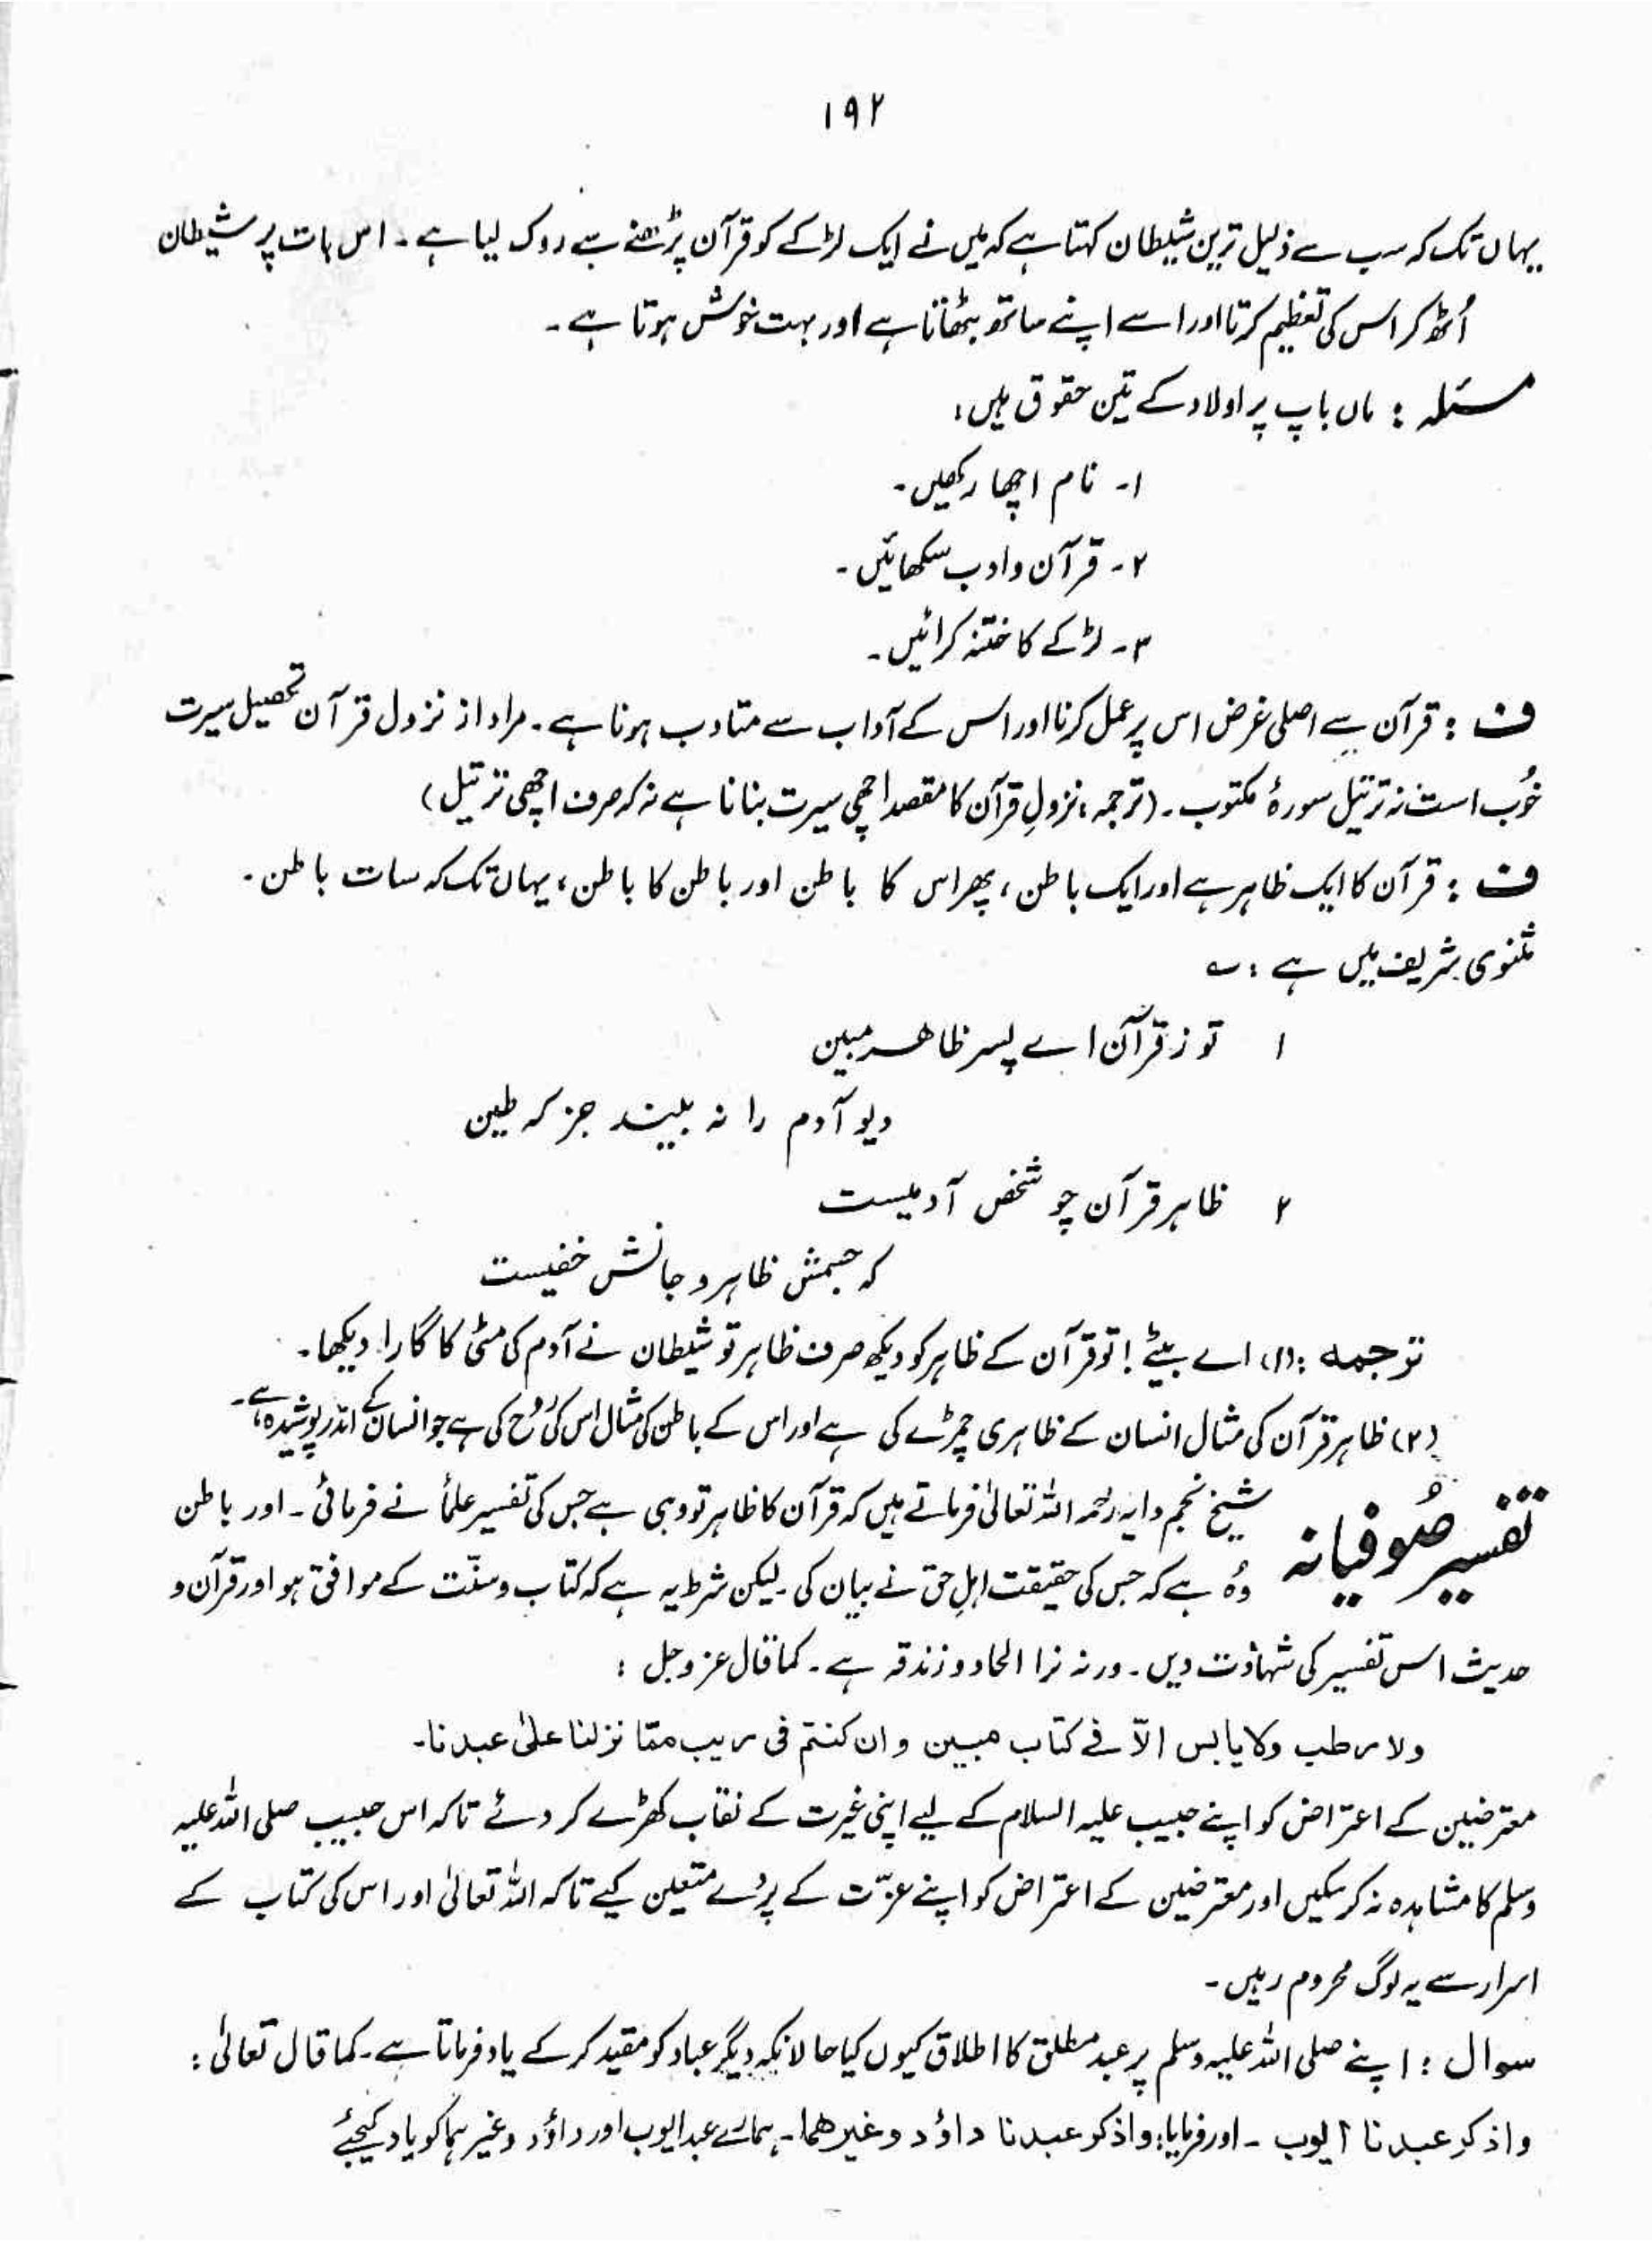 ۱۹۲
یہاں تک کہ سب سے ذلیل ترین شیطان کہتا ہے کہ میں نے ایک لڑکے کو قرآن پڑھنے سے روک لیا ہے۔ اس بات پر شیطان
اُٹھ کر اس کی تعظیم کرتا اور اسے اپنے ساتھ بٹھاتا ہے اور بہت خوش ہوتا ہے۔
مسئلہ : ماں باپ پر اولاد کے تین حقوق ہیں :
۱۔ نام اچھا رکھیں۔
۲۔ قرآن و ادب سکھائیں۔
۳۔ لڑکے کا ختنہ کرائیں۔
ف : قرآن سے اصلی غرض اس پر عمل کرنا اور اس کے آداب سے متادب ہونا ہے۔ مراد از نزول قرآن تحصیل سیرت
خُوب است نہ ترتیل سورۂ مکتوب۔ (ترجمہ : نزولِ قرآن کا مقصد اچھی سیرت بنانا ہے نہ کہ صرف اچھی ترتیل)
ف : قرآن کا ایک ظاہر ہے اور ایک باطن، پھر اس کا باطن اور باطن کا باطن، یہاں تک کہ سات باطن۔
مثنوی شریف میں ہے : ؎
۱ تو ز قرآن اے پسر ظاہر مبین
دیو آدم را نہ بیند جز کہ طین
۲ ظاہر قرآن چو شخص آدمیست
کہ جسمش ظاہر و جانش خفیست
ترجمہ : (۱) اے بیٹے ! تو قرآن کے ظاہر کو دیکھ صرف ظاہر تو شیطان نے آدم کی مٹی کا گارا دیکھا۔
(۲) ظاہر قرآن کی مثال انسان کے ظاہری چمڑے کی ہے اور اس کے باطن کی مثال اس کی رُوح کی ہے جو انسان کے اندر پوشیدہ ہے۔
تفسیر صُوفیانہ شیخ نجم دایہ رحمہ اللہ تعالیٰ فرماتے ہیں کہ قرآن کا ظاہر تو وہی ہے جس کی تفسیر علماً نے فرمائی۔ اور باطن
وُہ ہے کہ جس کی حقیقت اہلِ حق نے بیان کی۔ لیکن شرط یہ ہے کہ کتاب و سنّت کے موافق ہو اور قرآن و
حدیث اس تفسیر کی شہادت دیں۔ ورنہ نرا الحاد و زندقہ ہے۔ کما قال عز وجل :
ولا رطب ولا یابس الّا فے کتاب مبین و ان کنتم فی ریب ممّا نزلنا علیٰ عبدنا۔
معترضین کے اعتراض کو اپنے حبیب علیہ السلام کے لیے اپنی غیرت کے نقاب کھڑے کر دئے تاکہ اس حبیب صلی اللہ علیہ
وسلم کا مشاہدہ نہ کر سکیں اور معترضین کے اعتراض کو اپنے عزّت کے پردے متعین کیے تاکہ اللہ تعالیٰ اور اس کی کتاب کے
اسرار سے یہ لوگ محروم رہیں۔
سوال : اپنے صلی اللہ علیہ وسلم پر عبد مطلق کا اطلاق کیوں کیا حالانکہ دیگر عباد کو مقید کر کے یاد فرماتا ہے۔ کما قال تعالیٰ :
واذکر عبدنا ایوب ۔ اور فرمایا : واذکر عبدنا داؤد وغیرھما۔ ہمارے عبد ایوب اور داؤد وغیرہما کو یاد کیجئے